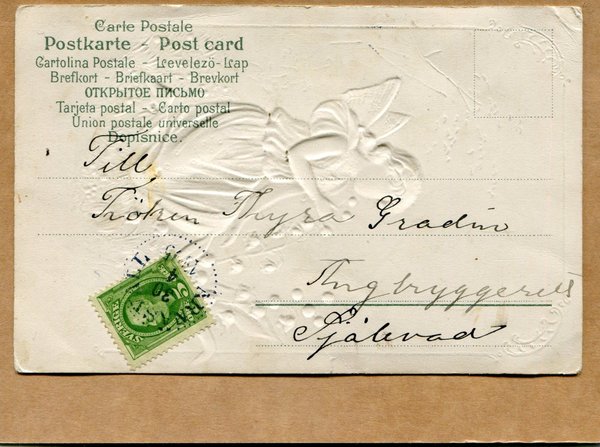 Carte Postale
Postkarte - Post card
Cartolina Postale - Levelezö-Lap
Brefkort - Briefkaart - Brevkort
ОТКРЫТОЕ ПИСЬМО
Tarjeta postal - Carto postal
Union postale universelle
Dopisnice.
Till
Fröken Thyra Gradin
Ångbryggeriet
Själevad
SVERIGE